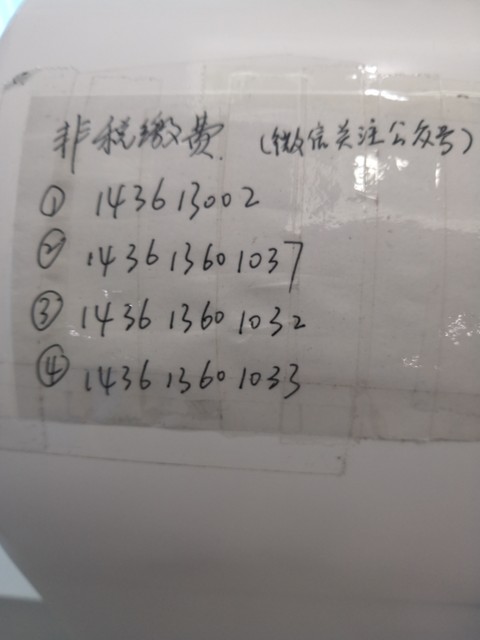 非税缴费 (微信关注公众号)
① 143613002
② 143613601037
③ 1436 1360 1032
④ 1436 1360 1033